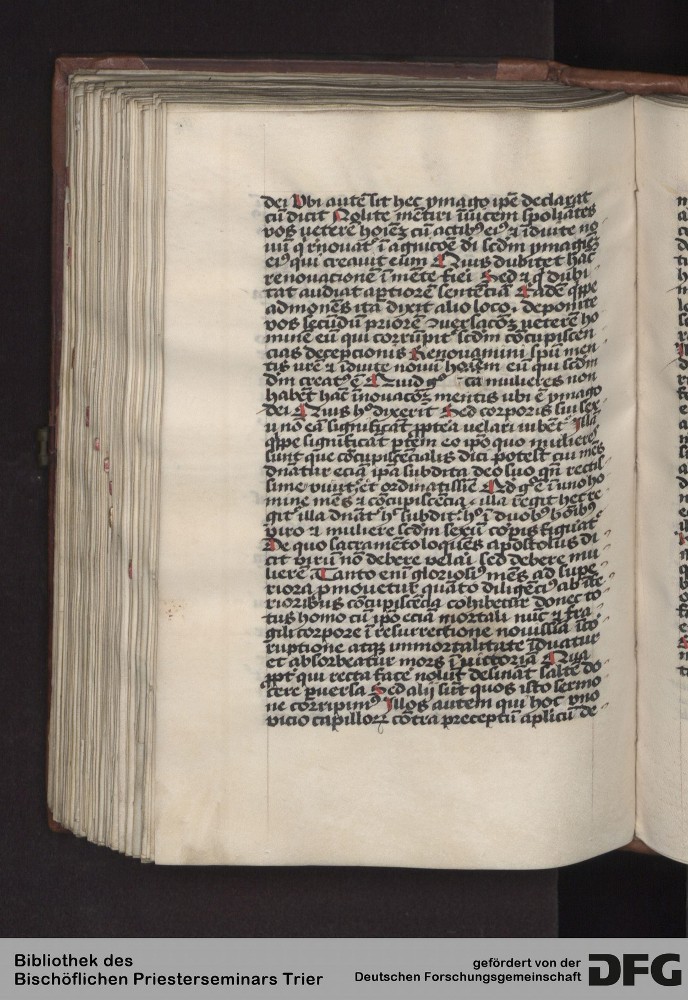 dei Vbi autē sit hec ymago ip̄e declarat
cū dicit Nolite mētiri īuicem spoliātes
vos veterē hoīez cū actibꝰ eiꝰ ⁊ īduite no
uū q̇ rīnouat᷑ ī agnicōē dī scdm ymagīez
eiꝰ qui creauit eum Quis dubitet hāc
renouationē ī mēte fieri Sed ⁊ q̇ dubi
tat audiat aꝑtiorē sentēciā Eadē q̇ppe
admonens ita dixit alio loco. deponite
vos secūdū priorē ꝯuersacōꝫ veterē ho
minē eū qui corrūpit᷑ scdm cōcupiscen
cias deceptionis Renouamini sp̄u men
tis vr̄e ⁊ īduite nouū hoīem eū qui scdm
dm̄ creatꝰ ē Quid gͦ ca mulieres non
habēt hāc īnouacōꝫ mentis vbi ē ymago
dei Quis hͦ dixerit Sed corporis sui sex
u nō eā significāt ꝓpt̄ea velari iubēt᷑ Illā
q̇ppe significāt ꝑtem eo ip̄o quo mulieres
sunt que cōcupiscēcialis dici potest cui mēs
dn̄atur eciā ip̄a subdita deo suo qn̄ rectis
sime viuit᷑ et ordinatissīe Qd gͦ ē ī vno ho
mine mēs ⁊ cōcupiscēcia. illa regit hec re
git᷑ illa dn̄at᷑ hͨ subdit᷑. hͦ ī duobꝰ hoībꝰ
viro ⁊ muliere scdm sexū corꝑis figurat᷑
De quo sacramēto loquēs apostolus di
cit virū nō debere velari sed debere mu
lierē Tanto enī gloriosiꝰ mēs ad supe
riora ꝓmouetur quāto diligēciꝰ ab īfe
rioribus cōcupiscēcia cohibetur donec to
tus homo cū ip̄o eciā mortali nūc ⁊ fra
gili corpore ī resurrectione nouissīa īcor
ruptione atqꝫ immortalitate īduatur
et absorbeatur mors ī victoriā Qua
ꝓpt᷑ qui recta face nolūt desināt saltē do
cere ꝑuersa Sed alij sūt quos isto sermo
ne corripimꝰ Illos autem qui hoc vno
vicio capilloꝝ cōtra preceptū aplicū de
Bibliothek des
Bischöflichen Priesterseminars Trier
gefördert von der
Deutschen Forschungsgemeinschaft
DFG